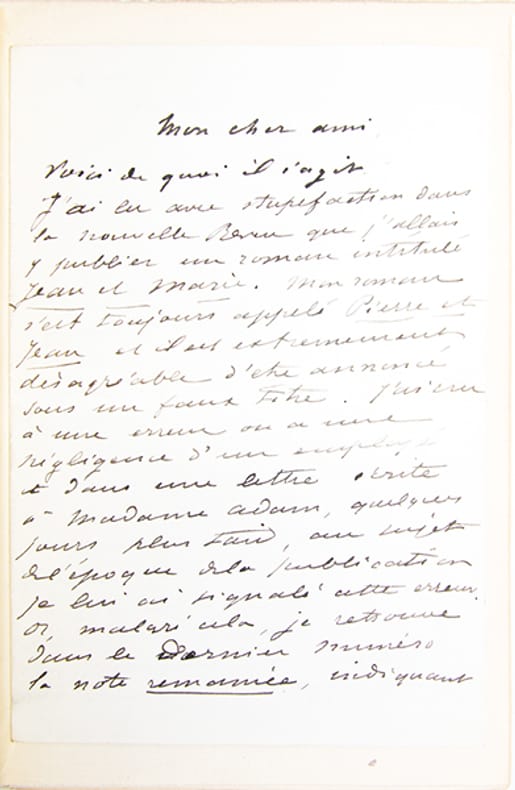 Mon cher ami
Voici de quoi il s'agit
J'ai lu avec stupefaction dans
la nouvelle Revue que j'allais
y publier un roman intitulé
Jean et Marie. Mon roman
s'est toujours appelé Pierre et
Jean et il est extremement
désagréable d'etre annoncé
sous un faux titre. J'ai cru
à une erreur ou a une
négligence d'un employé
et dans une lettre écrite
à Madame Adam, quelques
jours plus tard, au sujet
de l'époque de la publication
je lui ai signalé cette erreur.
Or, malgré cela, je retrouve
dans le dernier numéro
la note remaniée, indiquant